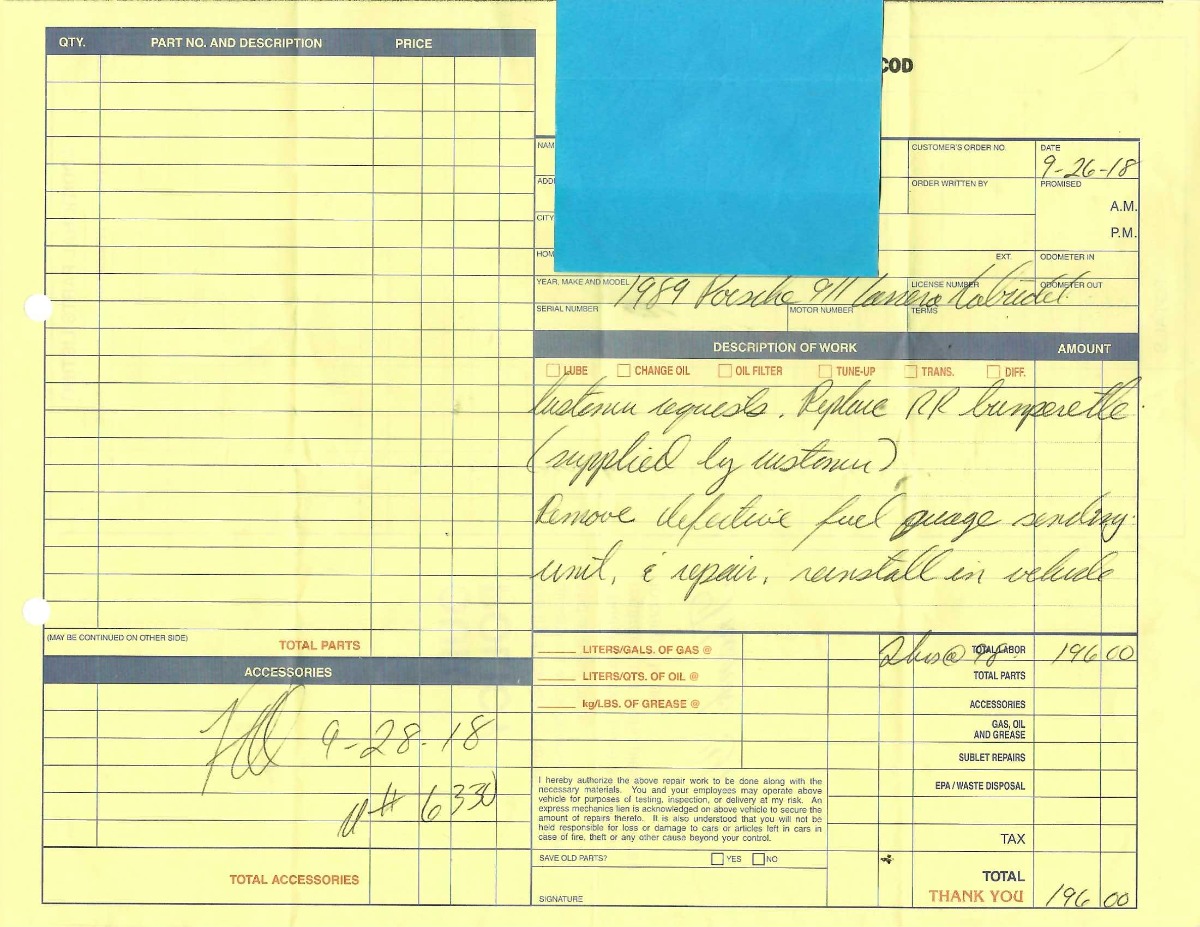 QTY. PART NO. AND DESCRIPTION PRICE
COD
NAM
CUSTOMER'S ORDER NO.
DATE
9-26-18
ADD
ORDER WRITTEN BY
PROMISED
A.M.
CITY
P.M.
HOM
EXT.
ODOMETER IN
YEAR, MAKE AND MODEL 1989 Porsche 911 Carrera Cabriolet
LICENSE NUMBER
ODOMETER OUT
SERIAL NUMBER
MOTOR NUMBER
TERMS
DESCRIPTION OF WORK AMOUNT
LUBE CHANGE OIL OIL FILTER TUNE-UP TRANS. DIFF.
Customer requests. Replace RR bumperette
(supplied by customer)
Remove defective fuel guage sending
unit, & repair, reinstall in vehicle
(MAY BE CONTINUED ON OTHER SIDE)
TOTAL PARTS
ACCESSORIES
9-28-18
# 6330
TOTAL ACCESSORIES
LITERS/GALS. OF GAS @
LITERS/QTS. OF OIL @
kg/LBS. OF GREASE @
2 hrs @ 98 TOTAL LABOR 196 00
TOTAL PARTS
ACCESSORIES
GAS, OIL
AND GREASE
SUBLET REPAIRS
EPA / WASTE DISPOSAL
TAX
I hereby authorize the above repair work to be done along with the
necessary materials. You and your employees may operate above
vehicle for purposes of testing, inspection, or delivery at my risk. An
express mechanics lien is acknowledged on above vehicle to secure the
amount of repairs thereto. It is also understood that you will not be
held responsible for loss or damage to cars or articles left in cars in
case of fire, theft or any other cause beyond your control.
SAVE OLD PARTS? YES NO
SIGNATURE
TOTAL
THANK YOU 196 00